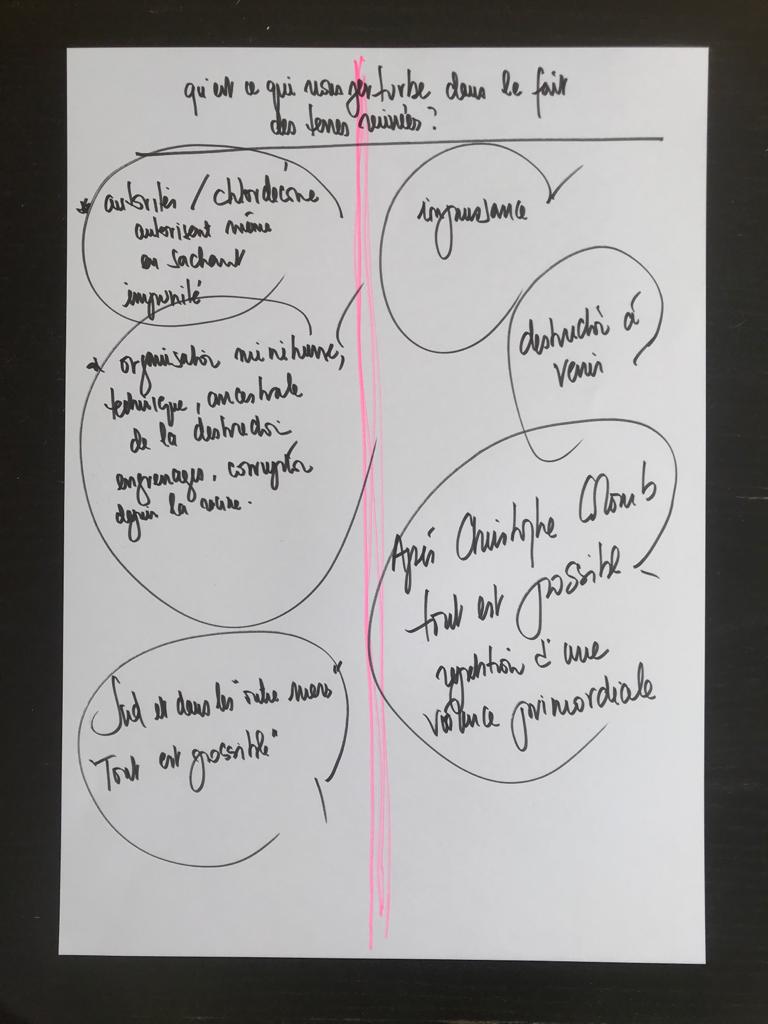 qu'est ce qui nous perturbe dans le fait
des terres ruinées ?
* autorités / chlordécone
autorisent même
en sachant
impunité
* organisation minitieuse,
technique, ancestrale
de la destruction
engrenages, corruption
depuis la
Sud et dans les "outre mers"
"Tout est possible"
impuissance
destruction à
venir
Après Christophe Colomb
tout est possible
repetition d'une
violence primordiale